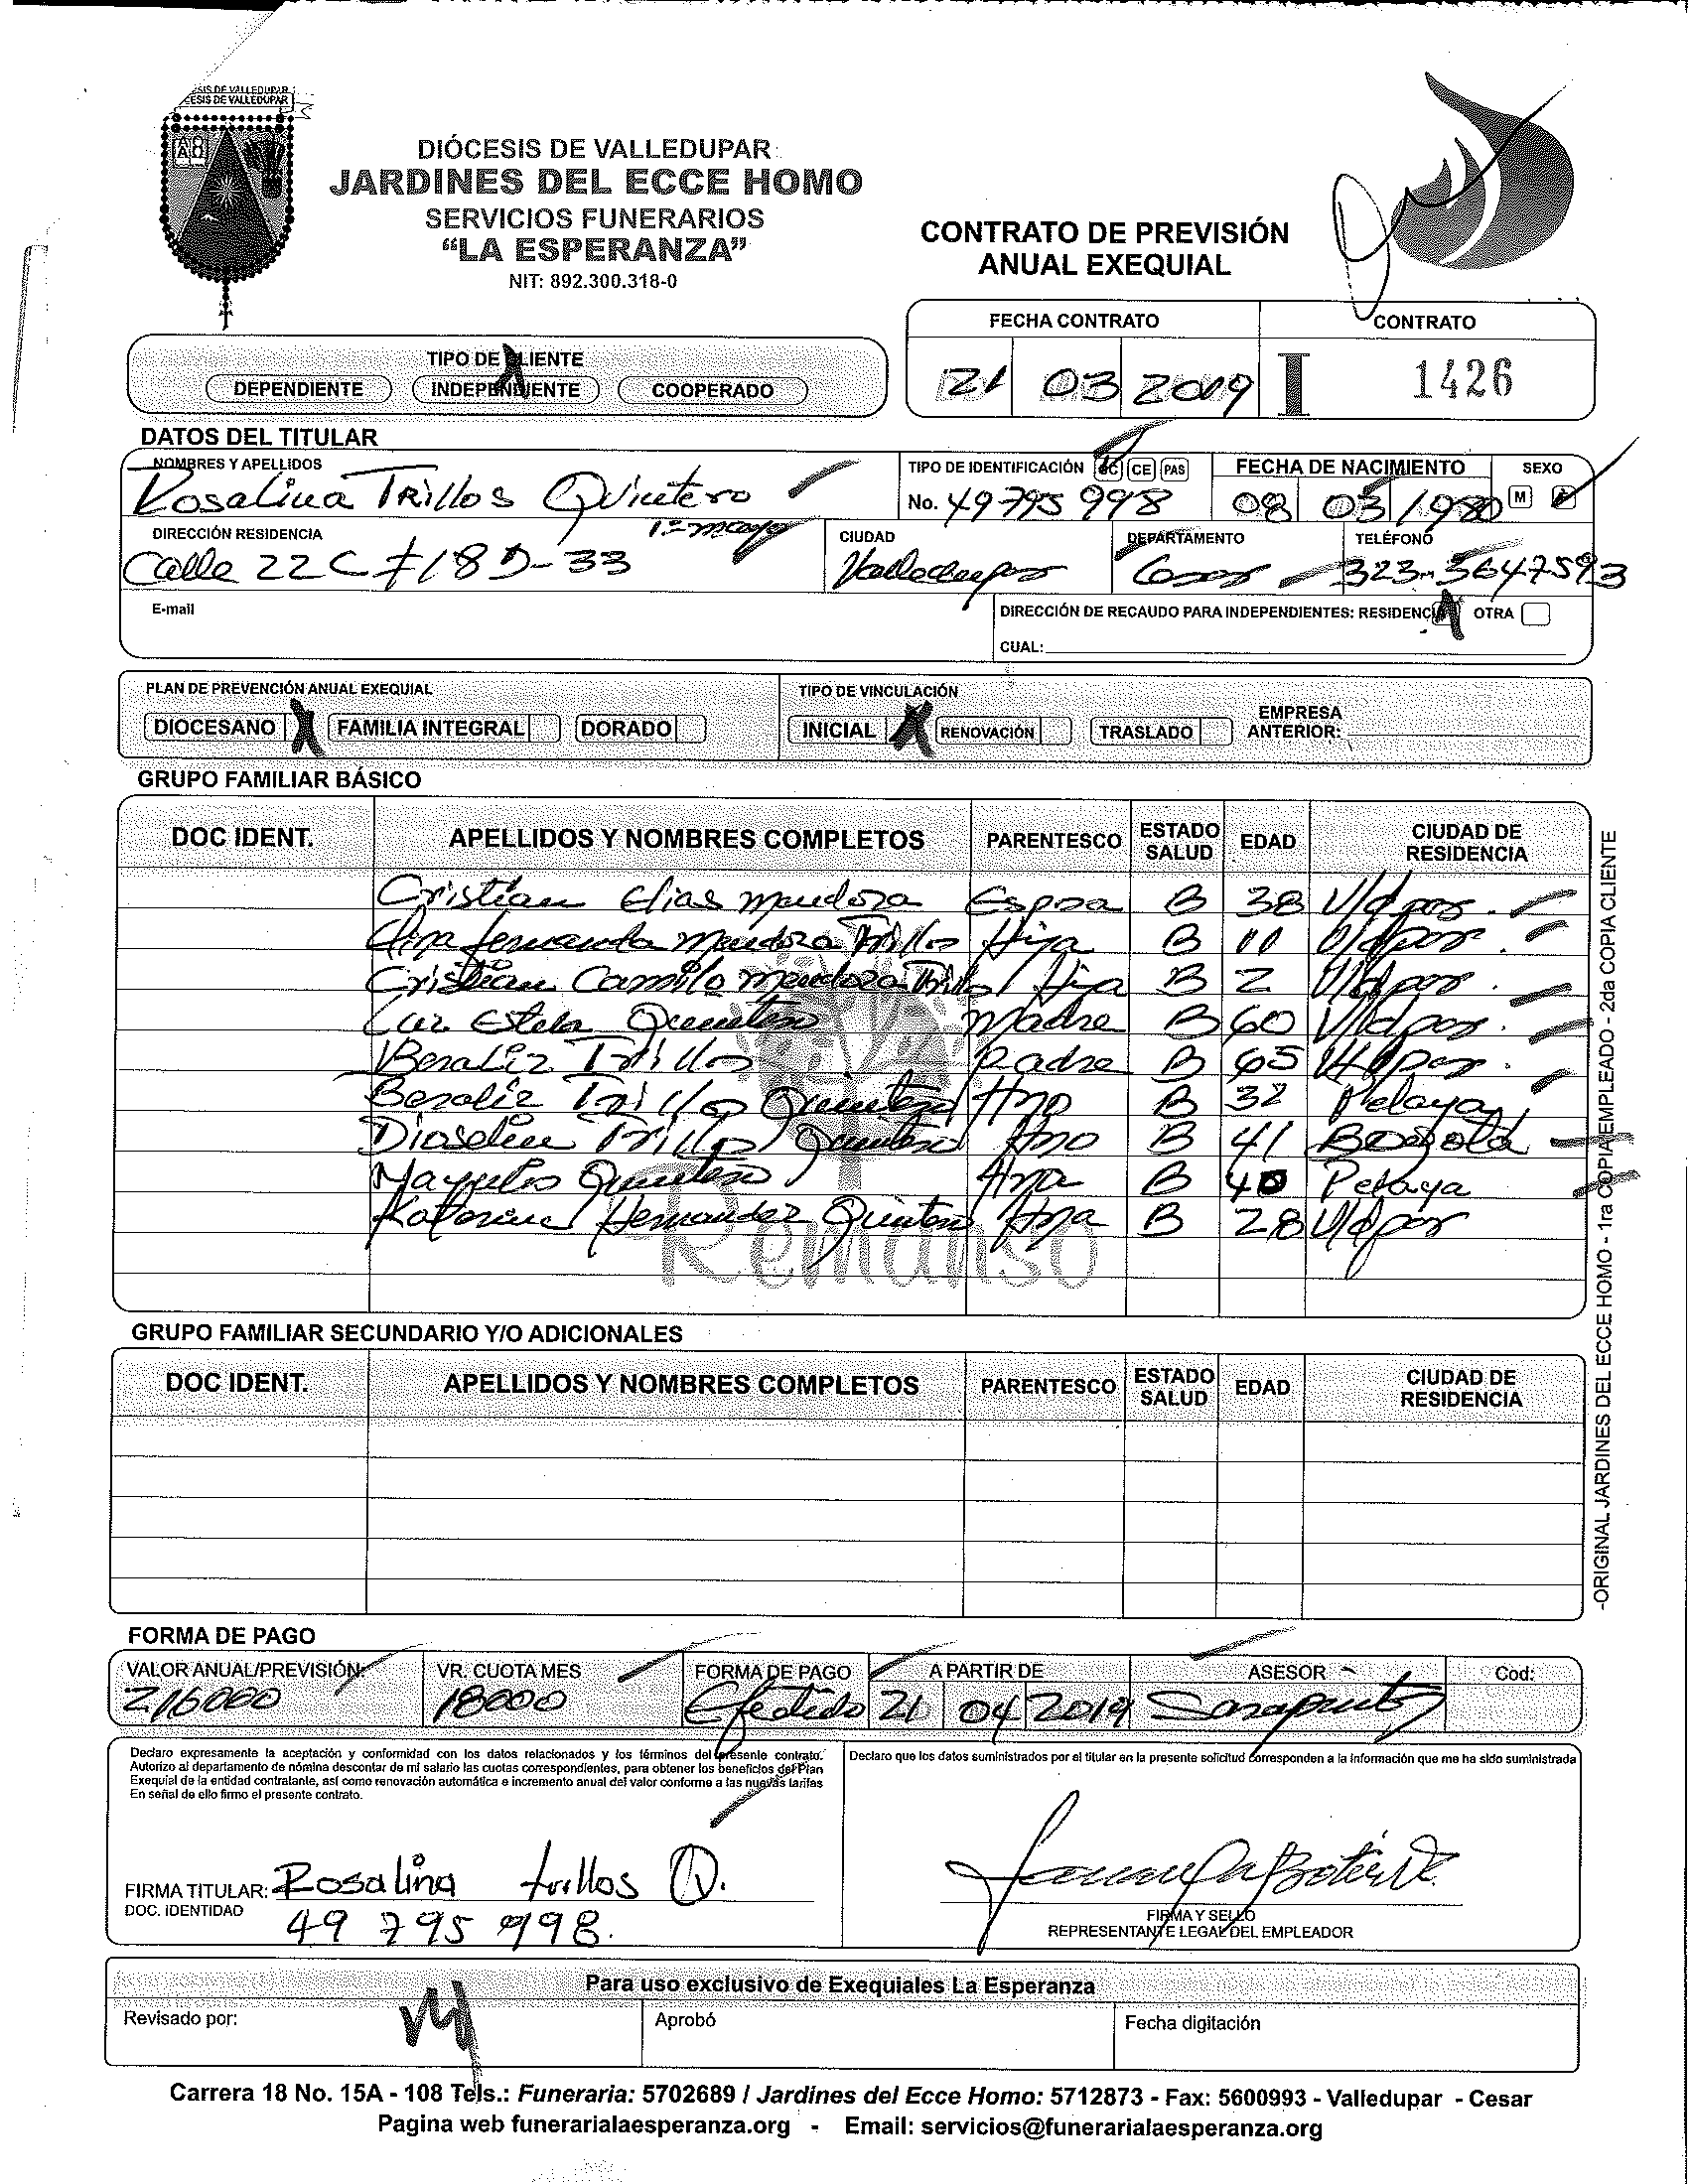 DIÓCESIS DE VALLEDUPAR
JARDINES DEL ECCE HOMO
SERVICIOS FUNERARIOS
“LA ESPERANZA”
NIT: 892.300.318-0
CONTRATO DE PREVISIÓN
ANUAL EXEQUIAL
FECHA CONTRATO CONTRATO
21 03 2019 I 1426
TIPO DE CLIENTE
DEPENDIENTE INDEPENDIENTE X COOPERADO
DATOS DEL TITULAR
NOMBRES Y APELLIDOS
Rosalina Trillos Quintero
TIPO DE IDENTIFICACIÓN CC CE PAS
No. 49795998
FECHA DE NACIMIENTO
08 03 1980
SEXO
M F
DIRECCIÓN RESIDENCIA
1º mayo
Calle 22 C # 18D-33
CIUDAD
Valledupar
DEPARTAMENTO
Cesar
TELÉFONO
323-5647593
E-mail
DIRECCIÓN DE RECAUDO PARA INDEPENDIENTES: RESIDENCIA X OTRA
CUAL:
PLAN DE PREVENCIÓN ANUAL EXEQUIAL
DIOCESANO X FAMILIA INTEGRAL DORADO
TIPO DE VINCULACIÓN
INICIAL X RENOVACIÓN TRASLADO
EMPRESA
ANTERIOR:
GRUPO FAMILIAR BÁSICO
DOC IDENT. APELLIDOS Y NOMBRES COMPLETOS PARENTESCO ESTADO SALUD EDAD CIUDAD DE RESIDENCIA
Cristian Elias Mendoza B 38 V/dpar
fernanda Mendoza Trillos Hija B 11 V/dpar
Cristian Camilo Mendoza Trillos B 2 V/dpar
Luz Estela Quintero Madre B 60 V/dpar
Trillos Padre B 65 V/dpar
Trillos Quintero Hno B 32 Pelaya
Trillos Quintero Hno B 41 Bogotá
Quintero Hna B 40 Pelaya
Katerine Hernandez Quintero Hna B 28 V/dpar
Remanso
GRUPO FAMILIAR SECUNDARIO Y/O ADICIONALES
DOC IDENT. APELLIDOS Y NOMBRES COMPLETOS PARENTESCO ESTADO SALUD EDAD CIUDAD DE RESIDENCIA
-ORIGINAL JARDINES DEL ECCE HOMO - 1ra COPIA EMPLEADO - 2da COPIA CLIENTE
FORMA DE PAGO
VALOR ANUAL/PREVISIÓN: VR. CUOTA MES FORMA DE PAGO A PARTIR DE ASESOR Cod:
216000 18000 Efectivo 21 04 2019
Declaro expresamente la aceptación y conformidad con los datos relacionados y los términos del presente contrato.
Autorizo al departamento de nómina descontar de mi salario las cuotas correspondientes, para obtener los beneficios del Plan
Exequial de la entidad contratante, así como renovación automática e incremento anual del valor conforme a las nuevas tarifas
En señal de ello firmo el presente contrato.
Declaro que los datos suministrados por el titular en la presente solicitud corresponden a la información que me ha sido suministrada
FIRMA TITULAR: Rosalina trillos Q.
DOC. IDENTIDAD
49 795 998.
FIRMA Y SELLO
REPRESENTANTE LEGAL DEL EMPLEADOR
Para uso exclusivo de Exequiales La Esperanza
Revisado por: Aprobó Fecha digitación
Carrera 18 No. 15A - 108 Tels.: Funeraria: 5702689 / Jardines del Ecce Homo: 5712873 - Fax: 5600993 - Valledupar - Cesar
Pagina web funerarialaesperanza.org - Email: servicios@funerarialaesperanza.org